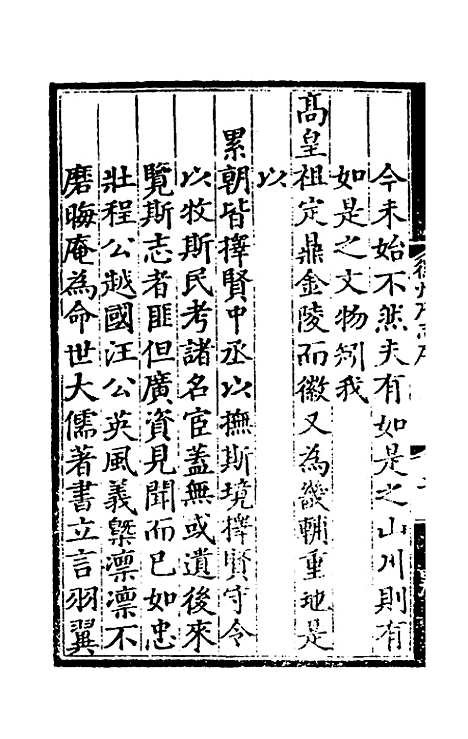 今未始不然夫有如是之山川則有
如是之文物矧我
高皇祖定鼎金陵而徽又為畿輔重地是
以
累朝皆擇賢中丞以撫斯境擇賢守令
以牧斯民考諸名宦蓋無或遺後來
覽斯志者匪但廣資見聞而已如忠
壯程公越國汪公英風義槩凜凜不
磨晦庵為命世大儒著書立言羽翼